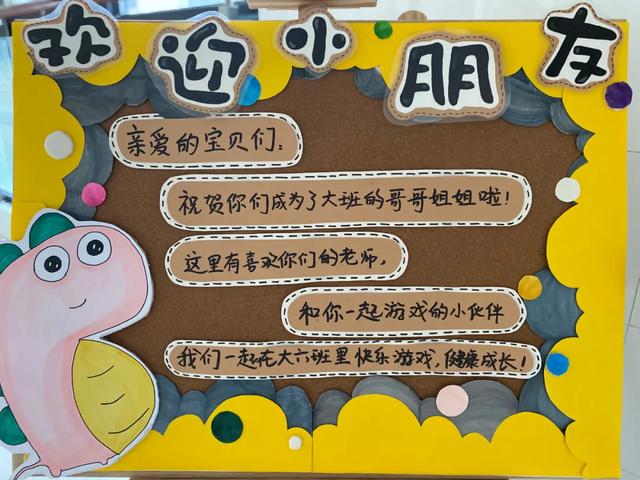 欢迎小朋友
亲爱的宝贝们:
祝贺你们成为了大班的哥哥姐姐啦!
这里有喜欢你们的老师,
和你一起游戏的小伙伴
我们一起在大六班里快乐游戏,健康成长!